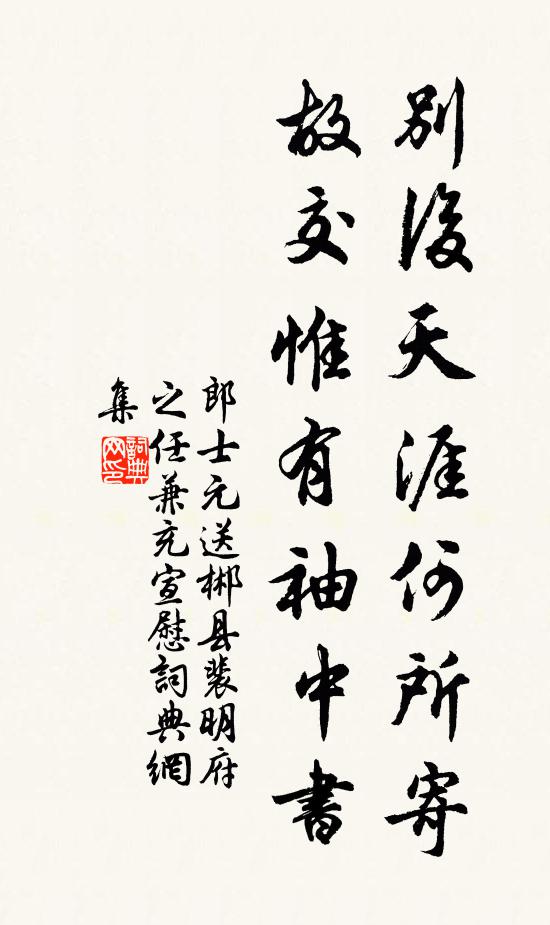 別後天涯何所寄
故交惟有袖中書
郎士元送郴县裴明府
之任兼充宣慰詞典網
集
詞典
网印